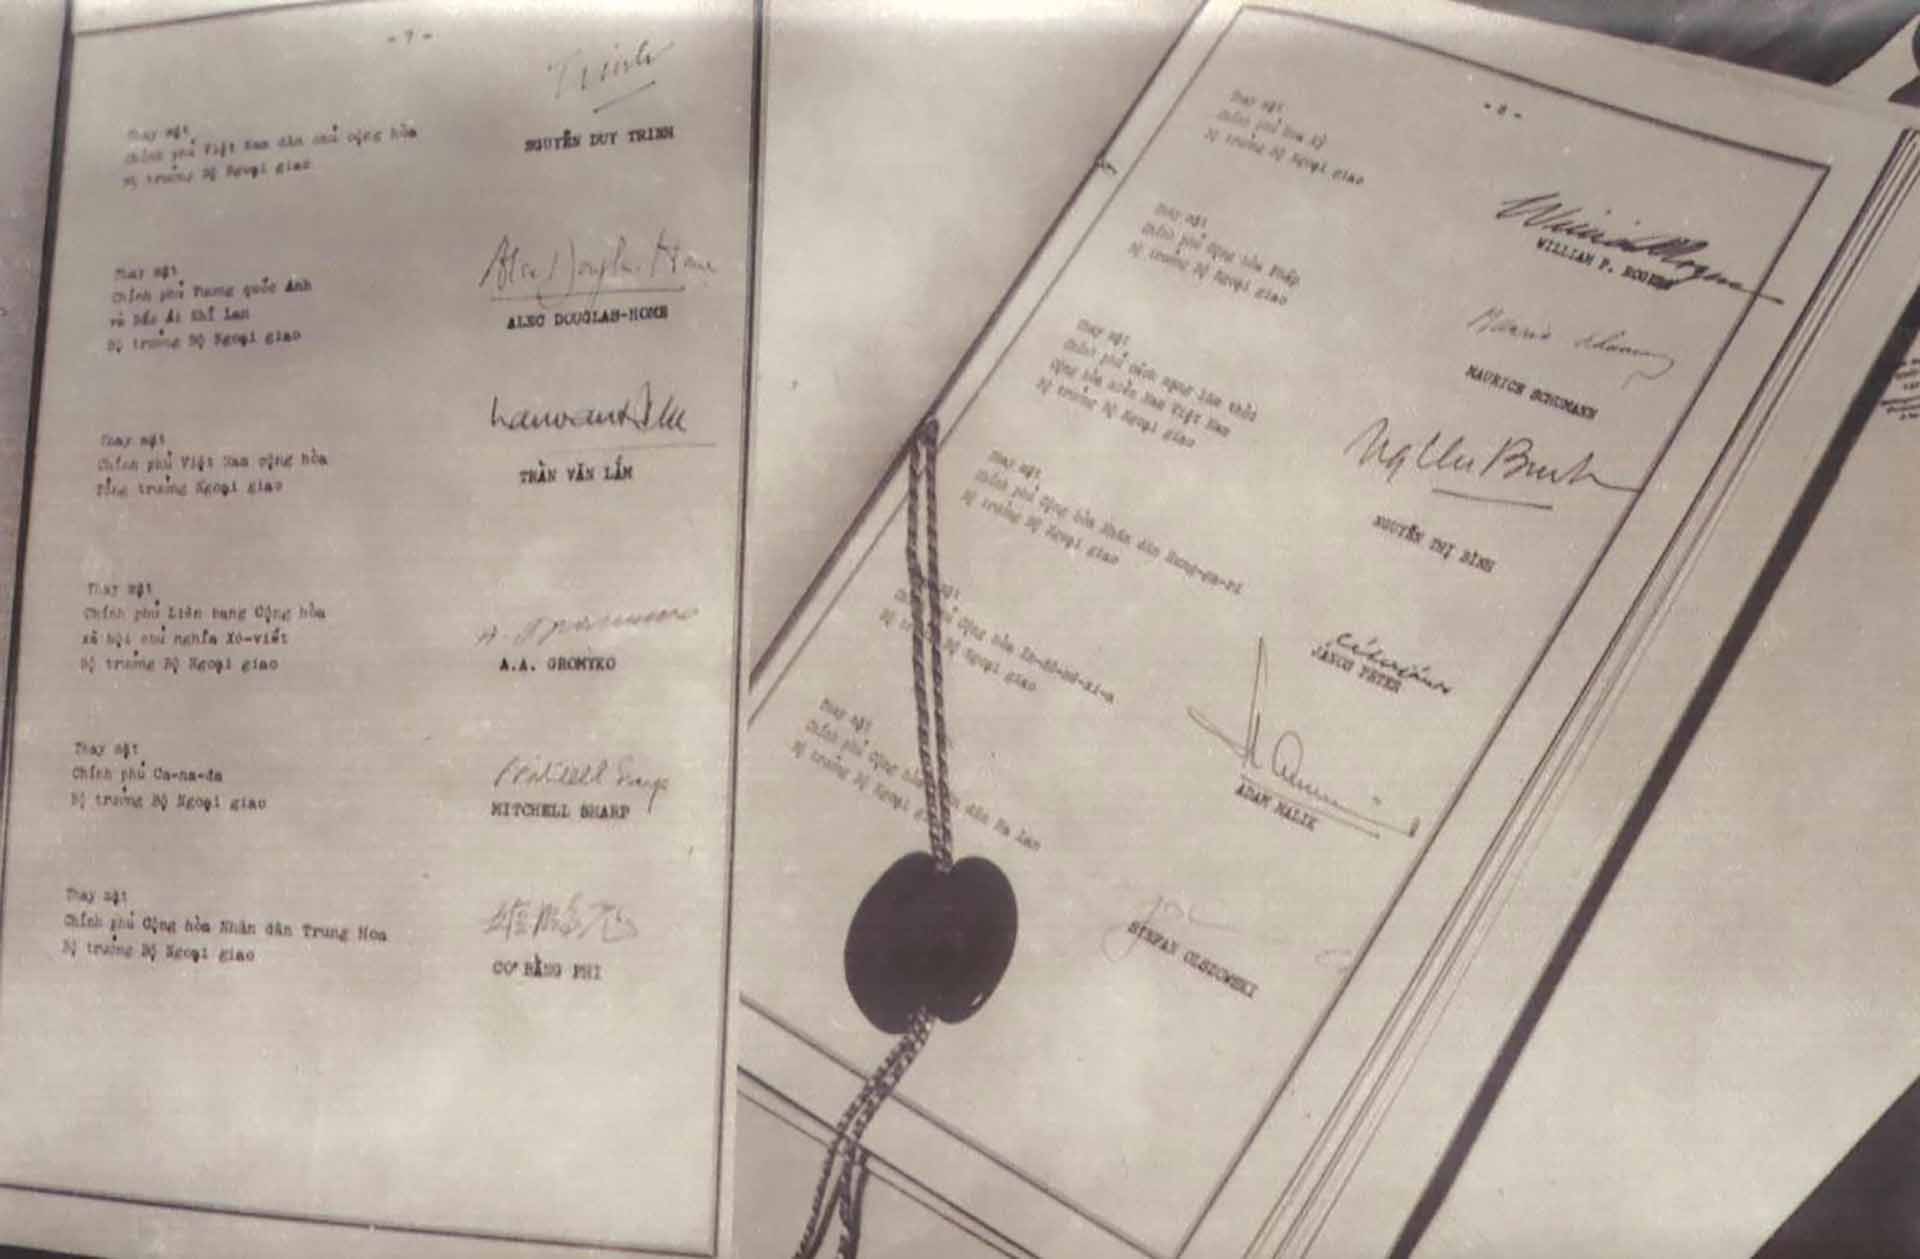 - 7 -
Trinh
Thay mặt
Chính phủ Việt Nam dân chủ cộng hòa
Bộ trưởng Bộ Ngoại giao
NGUYỄN DUY TRINH
Alec Douglas-Home
Thay mặt
Chính phủ Vương quốc Anh
và Bắc Ái Nhĩ Lan
Bộ trưởng Bộ Ngoại giao
ALEC DOUGLAS-HOME
Thay mặt
Chính phủ Việt Nam cộng hòa
Tổng trưởng Ngoại giao
TRẦN VĂN LẮM
Thay mặt
Chính phủ Liên bang Cộng hòa
xã hội chủ nghĩa Xô-viết
Bộ trưởng Bộ Ngoại giao
A.A. GROMYKO
Thay mặt
Chính phủ Ca-na-đa
Bộ trưởng Bộ Ngoại giao
Mitchell Sharp
MITCHELL SHARP
Thay mặt
Chính phủ Cộng hòa Nhân dân Trung Hoa
Bộ trưởng Bộ Ngoại giao
CƠ BẰNG PHI
- 8 -
Thay mặt
Chính phủ Hoa Kỳ
Bộ trưởng Bộ Ngoại giao
WILLIAM P. ROGERS
Thay mặt
Chính phủ Cộng hòa Pháp
Bộ trưởng Bộ Ngoại giao
MAURICE SCHUMANN
Thay mặt
Chính phủ cách mạng lâm thời
Cộng hòa miền Nam Việt Nam
Bộ trưởng Bộ Ngoại giao
Ng Thi Binh
NGUYỄN THỊ BÌNH
Thay mặt
Chính phủ Cộng hòa Nhân dân Hung-ga-ri
Bộ trưởng Bộ Ngoại giao
JANOS PETER
mặt
Chính phủ Cộng hòa In-đô-nê-xi-a
Bộ trưởng Bộ Ngoại giao
ADAM MALIK
Thay mặt
Chính phủ Cộng hòa dân Ba Lan
Bộ trưởng Bộ Ngoại
STEFAN OLSZOWSKI